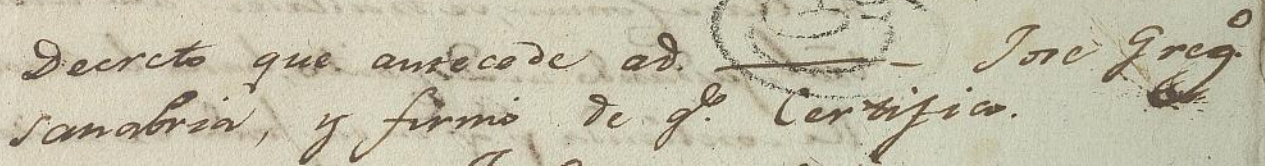 Decreto que antecede ad. ——— Jose Greg.º
sanabria, y firmó de q.ᵈᵒ Certifico.